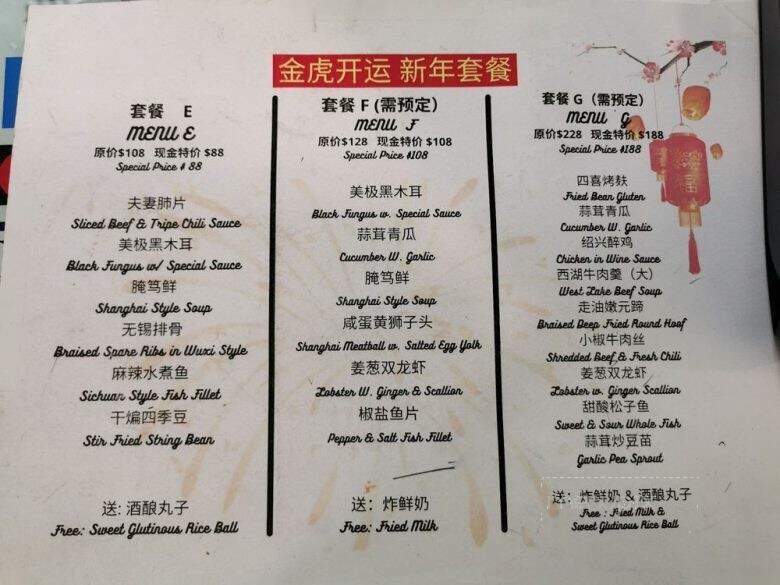 金虎开运 新年套餐
套餐 E
MENU E
原价$108 现金特价 $88
Special Price $ 88
夫妻肺片
Sliced Beef & Tripe Chili Sauce
美极黑木耳
Black Fungus w/ Special Sauce
腌笃鲜
Shanghai Style Soup
无锡排骨
Braised Spare Ribs in Wuxi Style
麻辣水煮鱼
Sichuan Style Fish Fillet
干煸四季豆
Stir Fried String Bean
送: 酒酿丸子
Free: Sweet Glutinous Rice Ball
套餐 F (需预定)
MENU F
原价$128 现金特价 $108
Special Price $108
美极黑木耳
Black Fungus w. Special Sauce
蒜茸青瓜
Cucumber W. Garlic
腌笃鲜
Shanghai Style Soup
咸蛋黄狮子头
Shanghai Meatball w. Salted Egg Yolk
姜葱双龙虾
Lobster W. Ginger & Scallion
椒盐鱼片
Pepper & Salt Fish Fillet
送: 炸鲜奶
Free: Fried Milk
套餐 G (需预定)
MENU G
原价$228 现金特价 $188
Special Price $188
四喜烤麸
Fried Bean Gluten
蒜茸青瓜
Cucumber W. Garlic
绍兴醉鸡
Chicken in Wine Sauce
西湖牛肉羹 (大)
West Lake Beef Soup
走油嫩元蹄
Braised Deep Fried Round Hoof
小椒牛肉丝
Shredded Beef & Fresh Chili
姜葱双龙虾
Lobster w. Ginger Scallion
甜酸松子鱼
Sweet & Sour Whole Fish
蒜茸炒豆苗
Garlic Pea Sprout
送: 炸鲜奶 & 酒酿丸子
Free : Fried Milk &
Sweet Glutinous Rice Ball
福